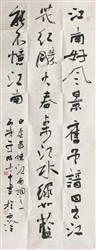 江南好风景舊曾諳日出江
花红勝火春来江水绿如蓝
能不憶江南
白居易憶江南